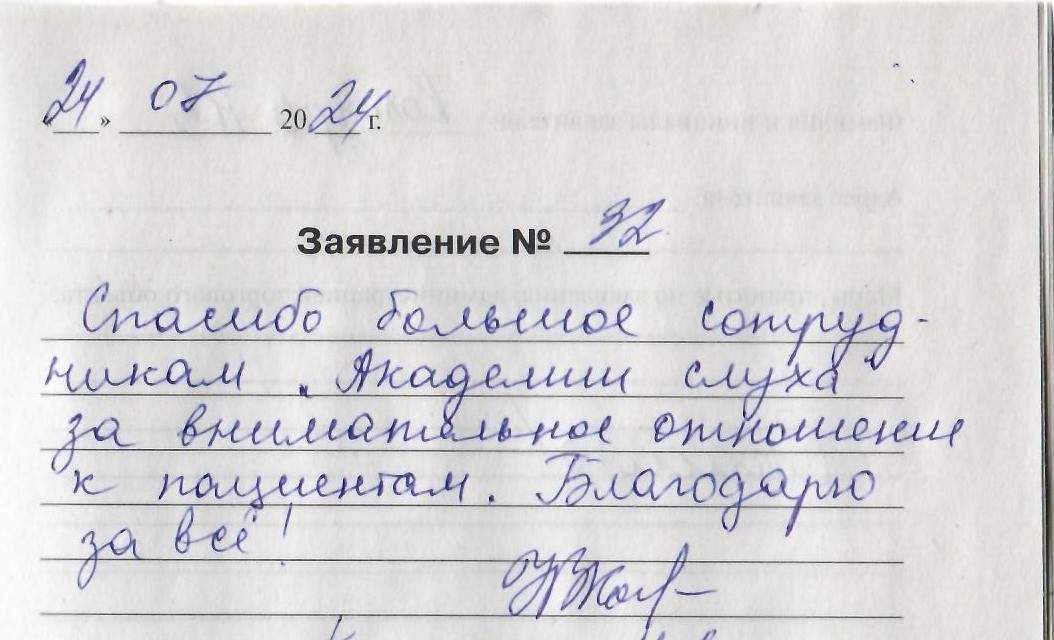 24» 07 2024 г.
Заявление № 32
Спасибо большое сотруд-
никам „Академии слуха"
за внимательное отношение
к пациентам. Благодарю
за всё!